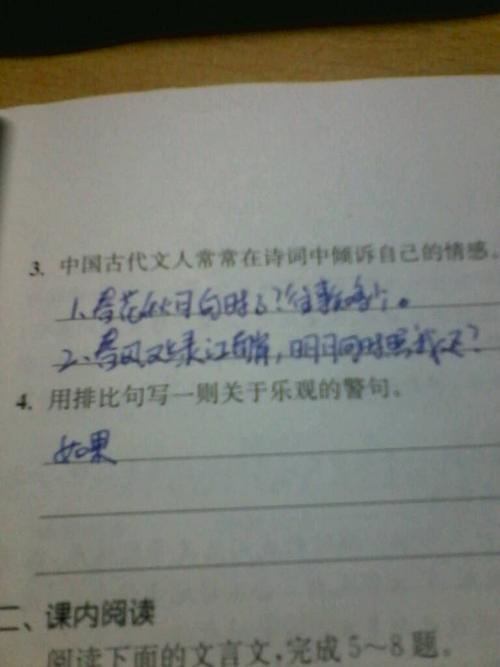 3. 中国古代文人常常在诗词中倾诉自己的情感。
1、春花秋月何时了?往事知多少。
2、春风又绿江南岸,明月何时照我还?
4. 用排比句写一则关于乐观的警句。
如果
二、课内阅读
阅读下面的文言文,完成5~8题。